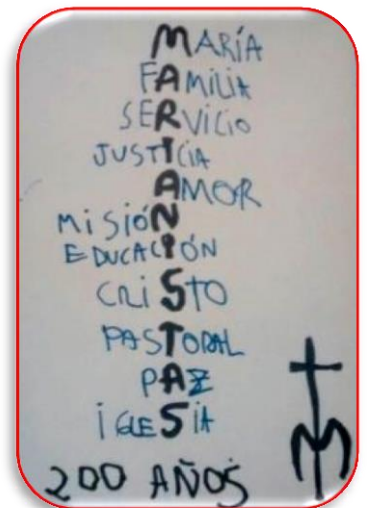 MARÍA
FAMILIA
SERVICIO
JUSTICIA
AMOR
MISIÓN
EDUCACIÓN
CRISTO
PASTORAL
PAZ
IGLESIA
200 AÑOS